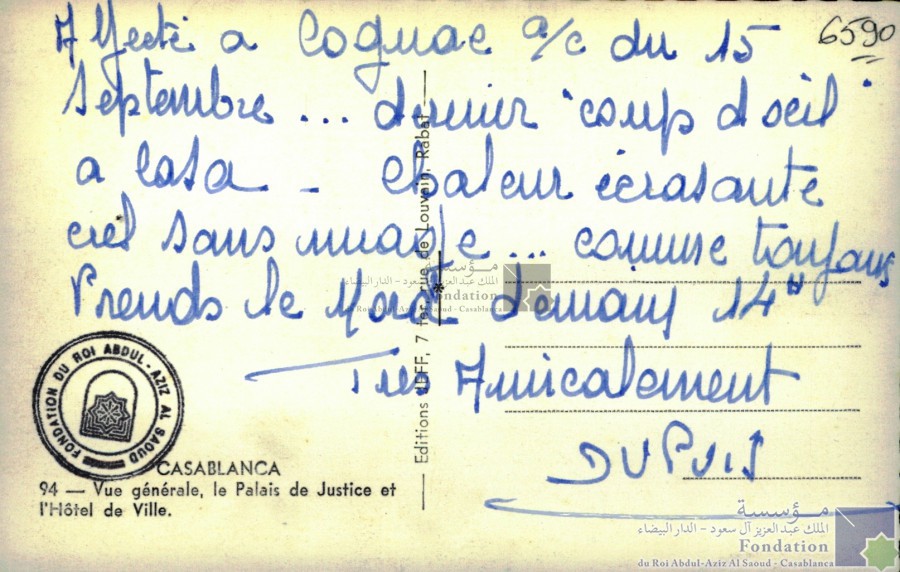 6590
Affecté a Cognac a/c du 15
Septembre ... dernier "coup d'oeil"
a Casa - Chaleur écrasante
ciel sans nuage ... comme toujours
Prends le demain 14
Très Amicalement
DUPUIS
FONDATION DU ROI ABDUL-AZIZ AL SAOUD
CASABLANCA
94 — Vue générale, le Palais de Justice et
l'Hôtel de Ville.
Editions 7 rue de Louvain, Rabat
مؤسسة
الملك عبد العزيز آل سعود - الدار البيضاء
Fondation
du Roi Abdul-Aziz Al Saoud - Casablanca
مؤسسة
الملك عبد العزيز آل سعود - الدار البيضاء
Fondation
du Roi Abdul-Aziz Al Saoud - Casablanca